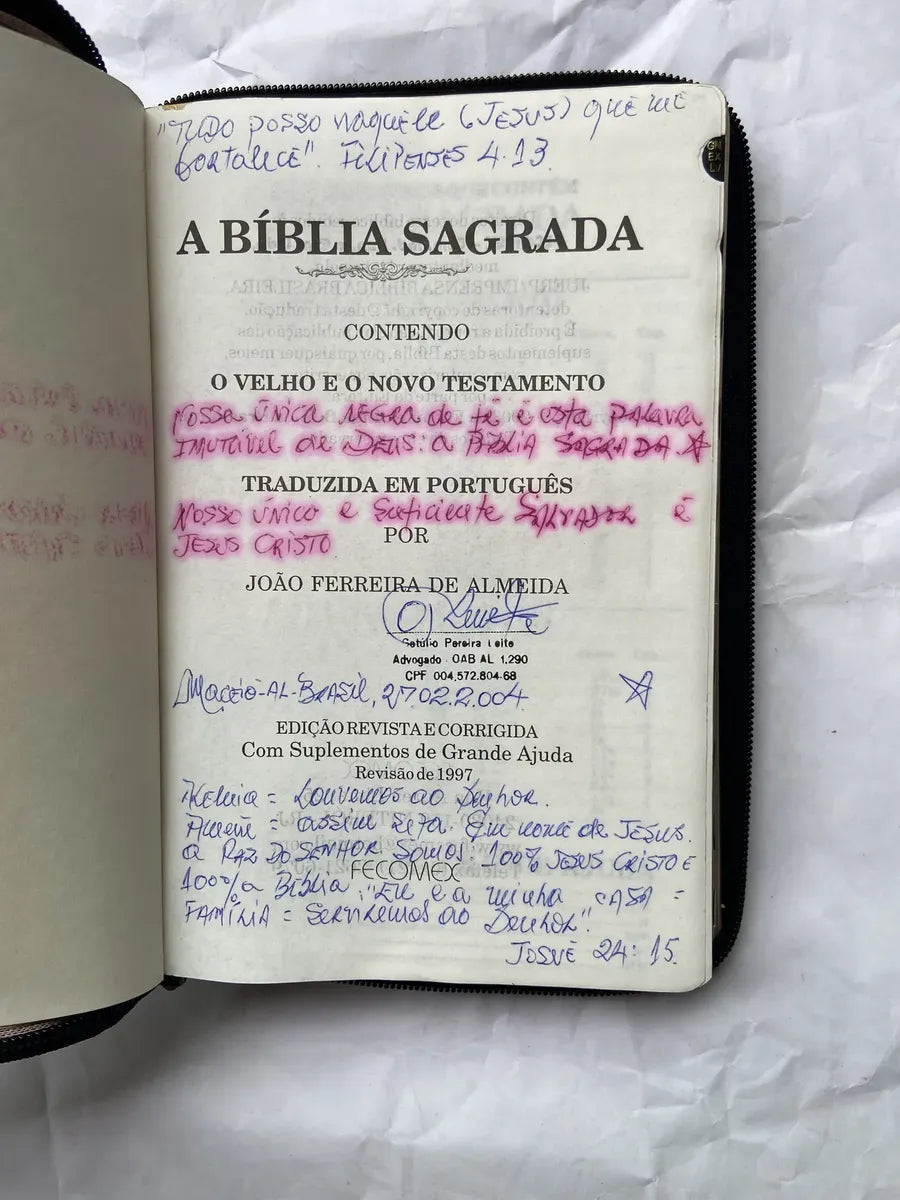 "TUDO POSSO NAQUELE (JESUS) QUE ME
FORTALECE". FILIPENSES 4.13.
A BÍBLIA SAGRADA
CONTENDO
O VELHO E O NOVO TESTAMENTO
NOSSA ÚNICA REGRA de fé é esta PALAVRA
IMUTÁVEL de DEUS: a BÍBLIA SAGRADA
TRADUZIDA EM PORTUGUÊS
NOSSO ÚNICO e Suficiente SALVADOR é
JESUS CRISTO
POR
JOÃO FERREIRA DE ALMEIDA
Getúlio Pereira Leite
Advogado OAB AL 1.290
CPF 004.572.804-68
MACEIÓ-AL-BRASIL, 27.02.2.004
EDIÇÃO REVISTA E CORRIGIDA
Com Suplementos de Grande Ajuda
Revisão de 1997
= Louvemos ao Senhor.
= assim seja. Em nome de JESUS.
a PAZ DO SENHOR. SOMOS 100% JESUS CRISTO E
FECOMEX
100% a BÍBLIA. "EU e a minha CASA =
FAMÍLIA = SERVIREMOS ao Senhor".
JOSUÉ 24:15.